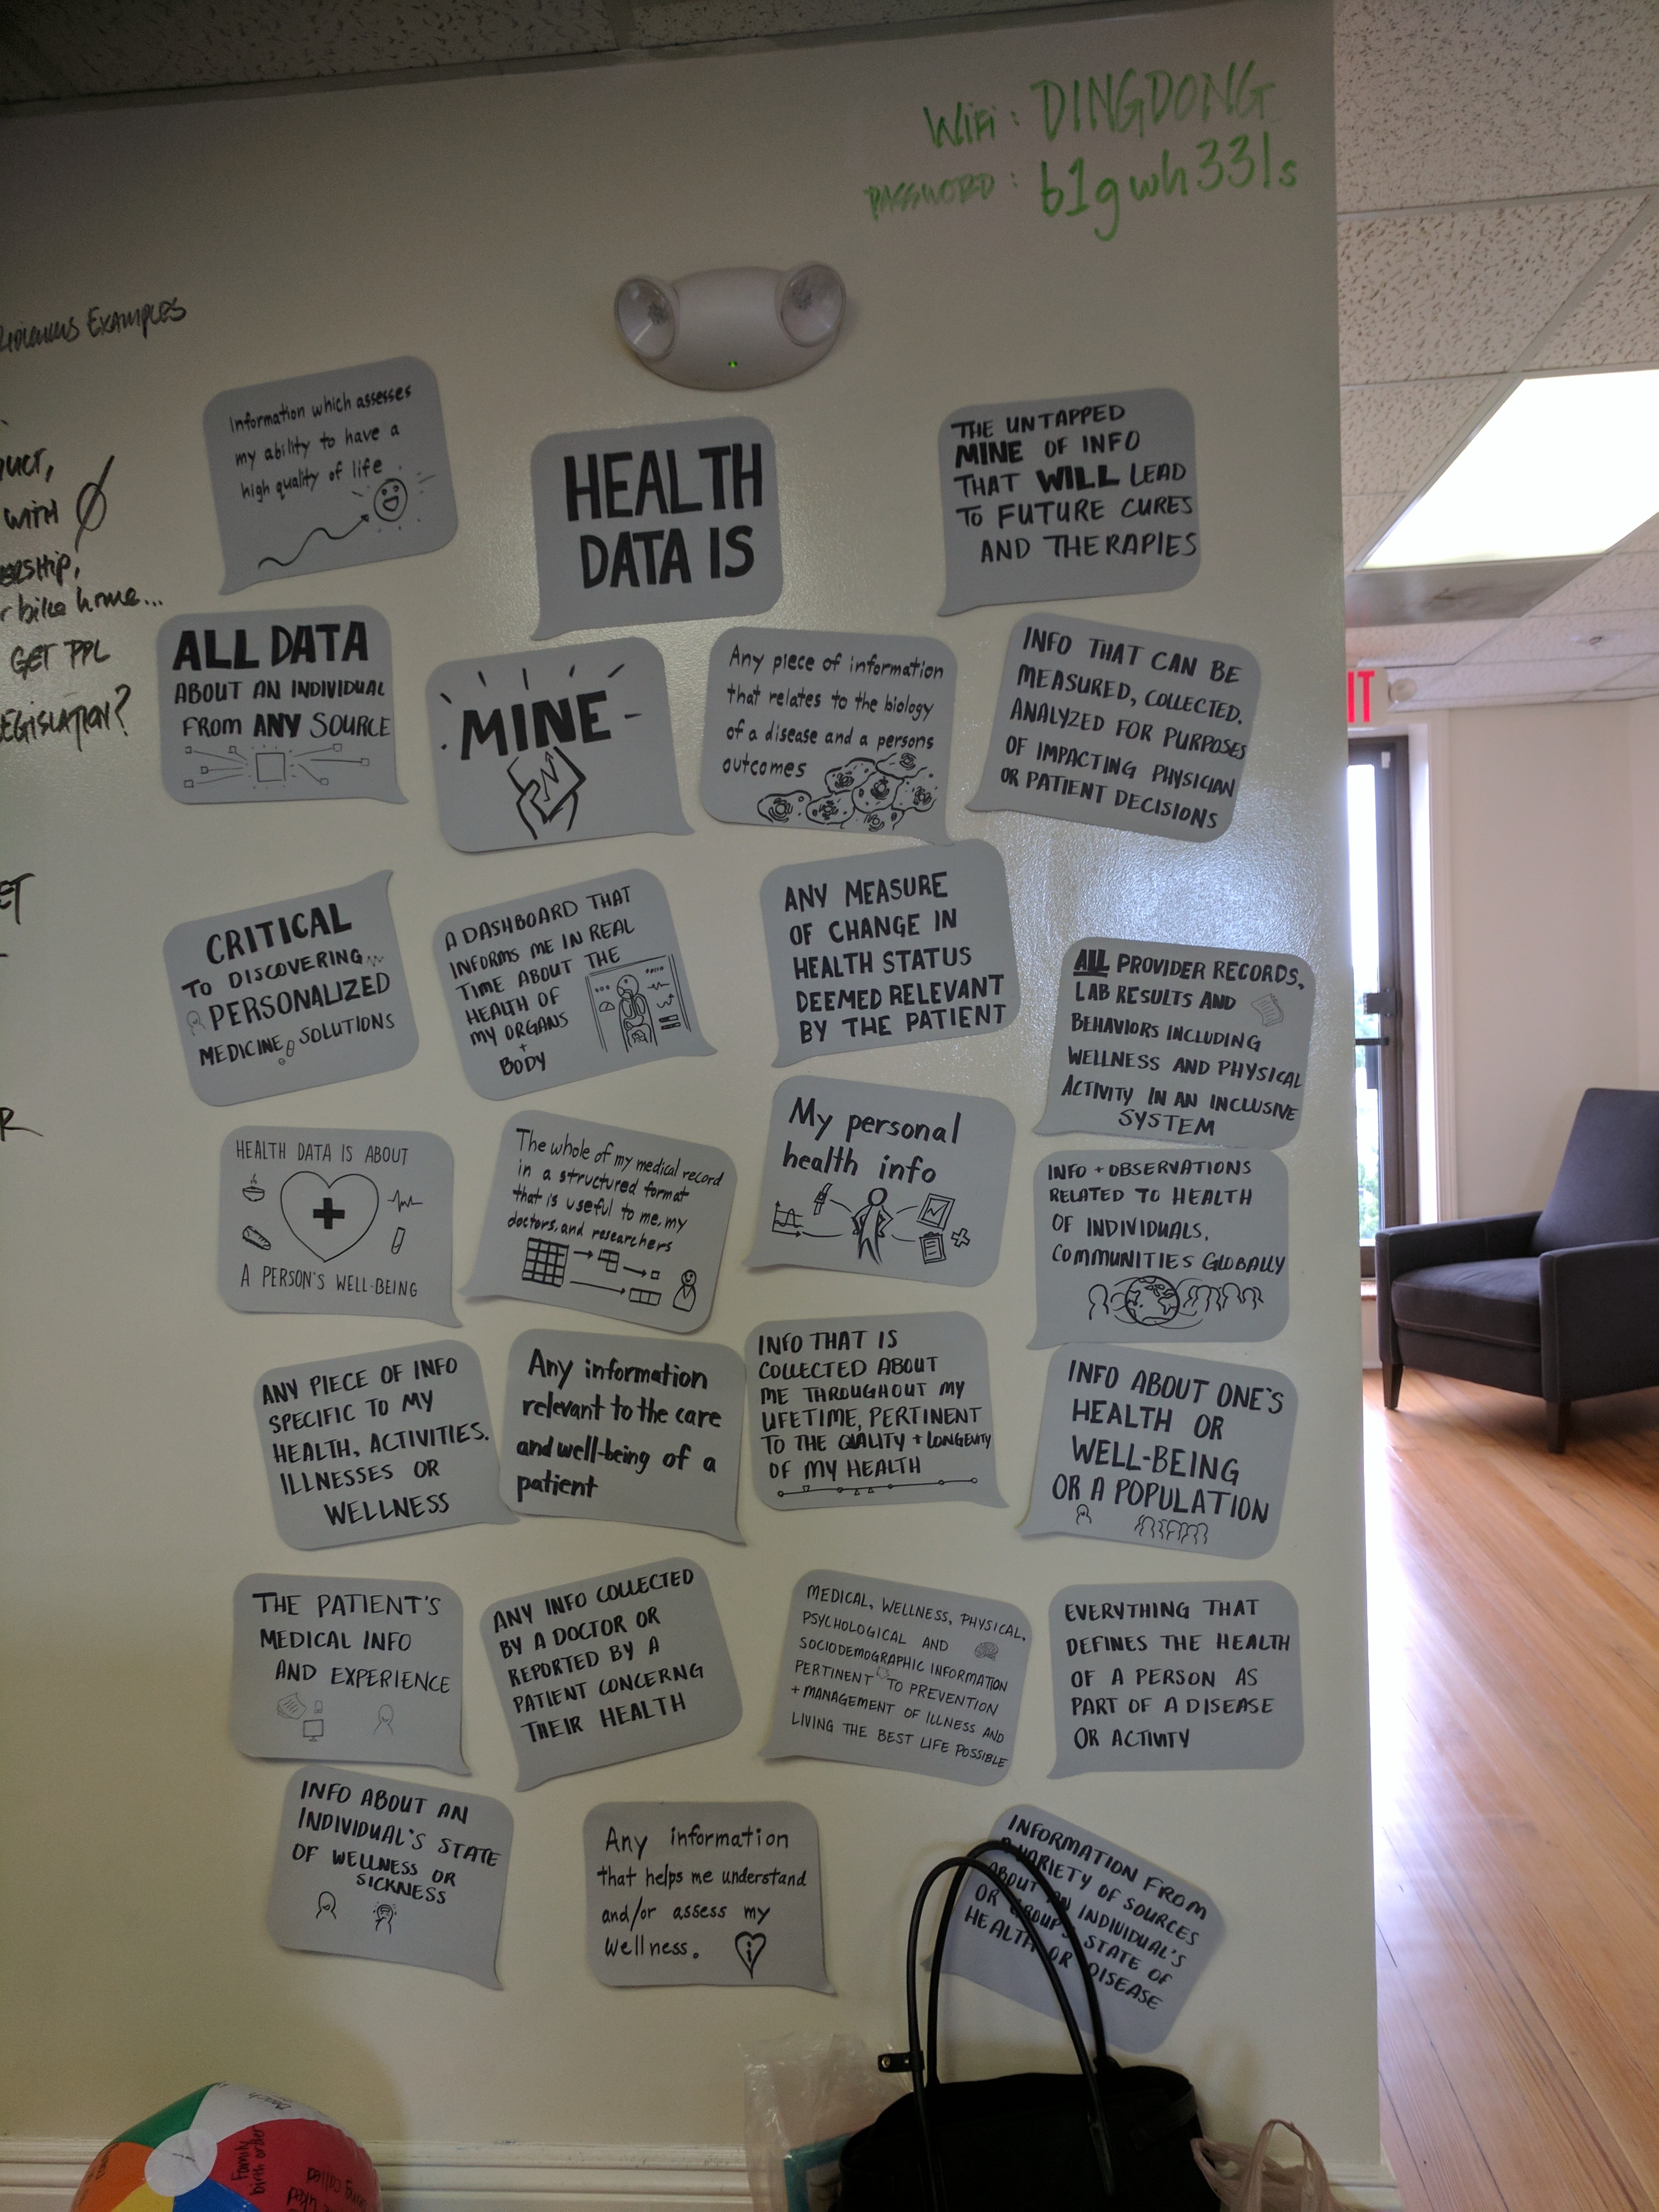 WiFi: DINGDONG
PASSWORD: b1gwh33ls
EXAMPLES
WITH Ø
bike home...
GET PPL
LEGISLATION?
Information which assesses
my ability to have a
high quality of life
HEALTH
DATA IS
THE UNTAPPED
MINE OF INFO
THAT WILL LEAD
TO FUTURE CURES
AND THERAPIES
ALL DATA
ABOUT AN INDIVIDUAL
FROM ANY SOURCE
MINE
Any piece of information
that relates to the biology
of a disease and a persons
outcomes
INFO THAT CAN BE
MEASURED, COLLECTED,
ANALYZED FOR PURPOSES
OF IMPACTING PHYSICIAN
OR PATIENT DECISIONS
IT
CRITICAL
TO DISCOVERING
PERSONALIZED
MEDICINE SOLUTIONS
A DASHBOARD THAT
INFORMS ME IN REAL
TIME ABOUT THE
HEALTH OF
MY ORGANS
+
BODY
ANY MEASURE
OF CHANGE IN
HEALTH STATUS
DEEMED RELEVANT
BY THE PATIENT
ALL PROVIDER RECORDS,
LAB RESULTS AND
BEHAVIORS INCLUDING
WELLNESS AND PHYSICAL
ACTIVITY IN AN INCLUSIVE
SYSTEM
HEALTH DATA IS ABOUT
A PERSON'S WELL-BEING
The whole of my medical record
in a structured format
that is useful to me, my
doctors, and researchers
My personal
health info
INFO + OBSERVATIONS
RELATED TO HEALTH
OF INDIVIDUALS,
COMMUNITIES GLOBALLY
ANY PIECE OF INFO
SPECIFIC TO MY
HEALTH, ACTIVITIES,
ILLNESSES OR
WELLNESS
Any information
relevant to the care
and well-being of a
patient
INFO THAT IS
COLLECTED ABOUT
ME THROUGHOUT MY
LIFETIME, PERTINENT
TO THE QUALITY + LONGEVITY
OF MY HEALTH
INFO ABOUT ONE'S
HEALTH OR
WELL-BEING
OR A POPULATION
THE PATIENT'S
MEDICAL INFO
AND EXPERIENCE
ANY INFO COLLECTED
BY A DOCTOR OR
REPORTED BY A
PATIENT CONCERNG
THEIR HEALTH
MEDICAL, WELLNESS, PHYSICAL,
PSYCHOLOGICAL AND
SOCIODEMOGRAPHIC INFORMATION
PERTINENT TO PREVENTION
+ MANAGEMENT OF ILLNESS AND
LIVING THE BEST LIFE POSSIBLE
EVERYTHING THAT
DEFINES THE HEALTH
OF A PERSON AS
PART OF A DISEASE
OR ACTIVITY
INFO ABOUT AN
INDIVIDUAL'S STATE
OF WELLNESS OR
SICKNESS
Any information
that helps me understand
and/or assess my
wellness.
INFORMATION FROM
A VARIETY OF SOURCES
ABOUT AN INDIVIDUAL'S
OR GROUP'S STATE OF
HEALTH OR DISEASE
Family
birth order